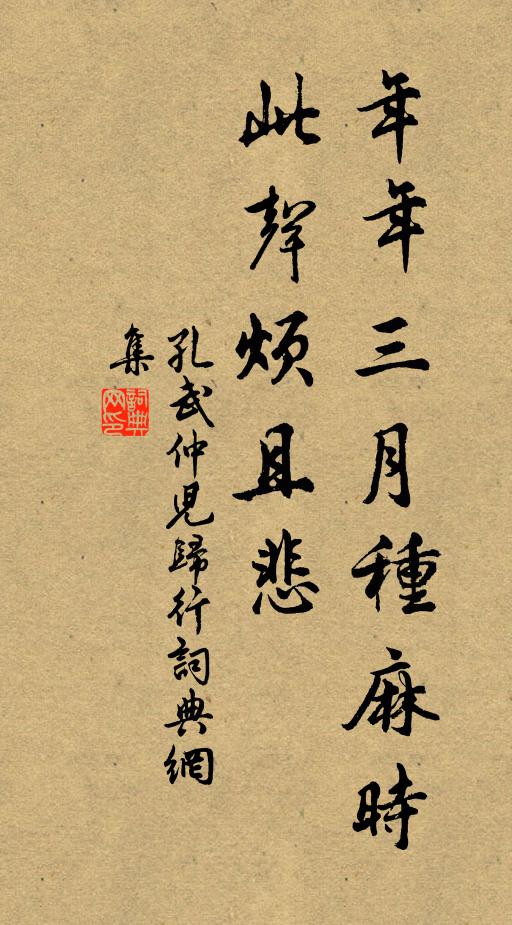 年年三月種麻時
此聲煩且悲
孔武仲兒歸行詞典網
集
詞典
网印